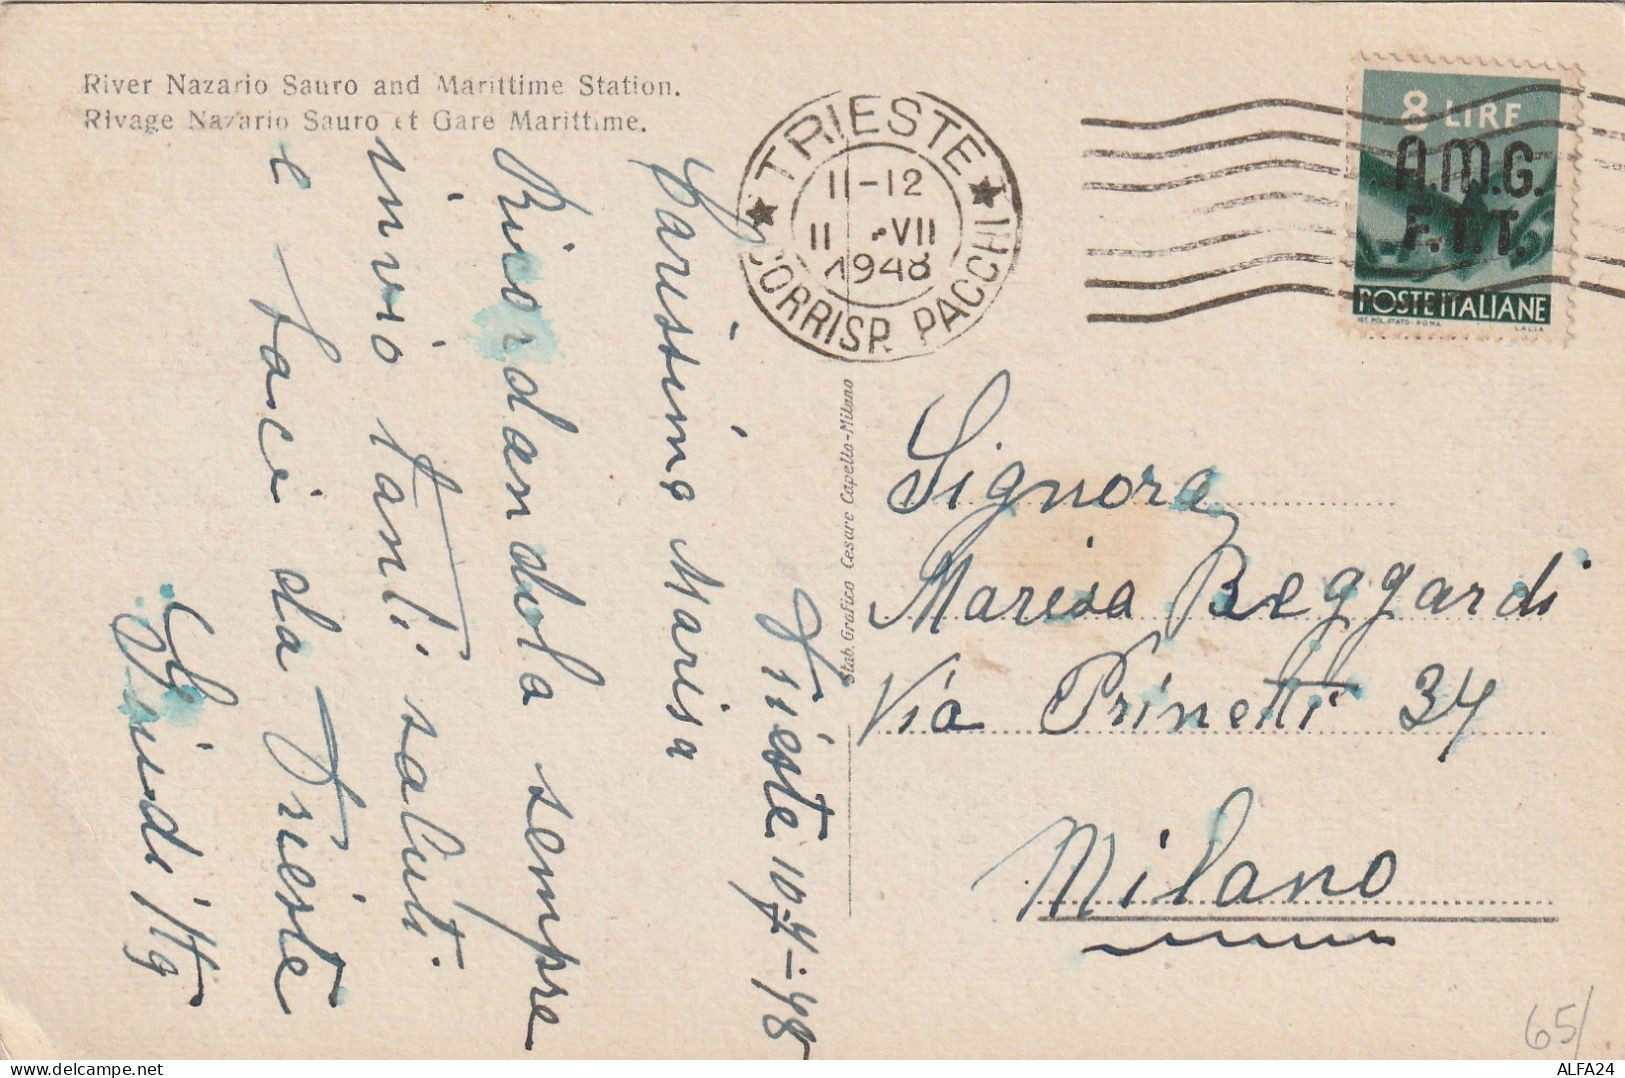 River Nazario Sauro and Marittime Station.
Rivage Nazario Sauro et Gare Marittime.
TRIESTE
11-12
11 .VII
1948
CORRISP. PACCHI
8 LIRE
A.M.G.
F.T.T.
POSTE ITALIANE
IST. POL. STATO - ROMA
Trieste 10-7-48
Carissima Marisa
Ricordandola sempre
invio tanti saluti
e baci da Trieste
Stab. Grafico Cesare Capello-Milano
Signora
Marisa Beggardi
Via Prinetti 34
Milano
65/
ALFA24